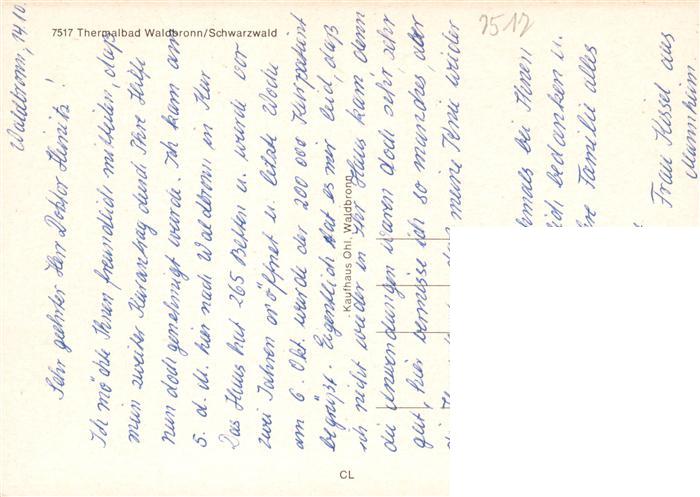 7517 Thermalbad Waldbronn/Schwarzwald
7517
Waldbronn, 14.10.
Sehr geehrter Herr Doktor Heinitz!
Ich möchte Ihnen freundlich mitteilen, daß
mein zweiter Kurantrag durch Ihre Hilfe
nun doch genehmigt wurde. Ich kam am
5. d. M. hier nach Waldbronn in Kur
Das Haus hat 265 Betten u. wurde vor
zwei Jahren eröffnet u. letzte Woche
am 6. Okt. wurde der 200 000 Kurpatient
begrüßt. Eigentlich tat es mir leid, daß
ich nicht wieder in Ihr Haus kam denn
die Anwendungen waren doch sehr sehr
gut, hier vermisse ich so manches, aber
meine Knie wieder
bei Ihnen
bedanken u.
Familie alles
Frau Kissel aus
Mannheim.
Kaufhaus Ohl, Waldbronn
CL